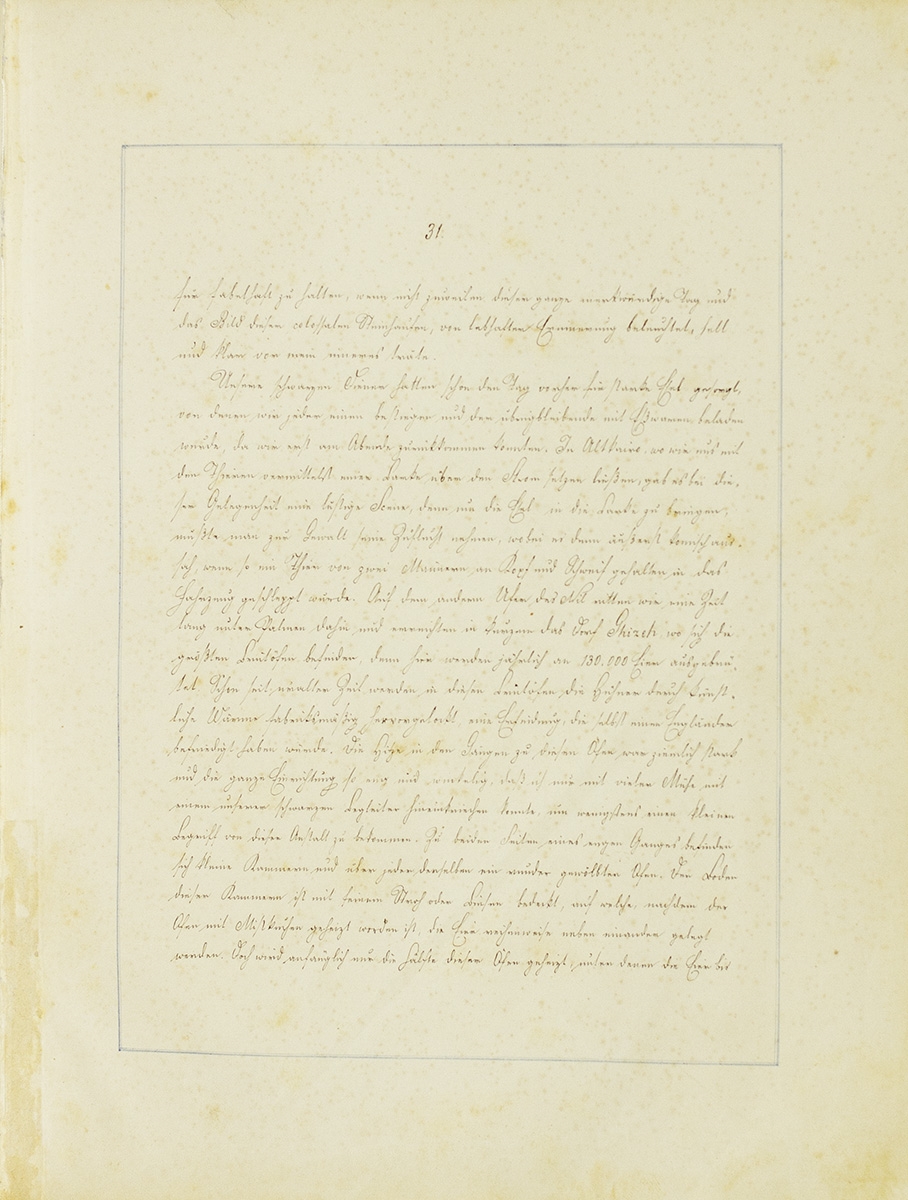 31.
für fabelhaft zu halten, wenn nicht zuweilen dieser ganze merkwürdige Tag und
das Bild dieser colossalen Steinhaufen, von lebhafter Erinnerung beleuchtet, hell
und klar vor mein inneres träte.
Unsere schwarzen Diener hatten schon den Tag vorher für starke Esel gesorgt,
von denen wir jeder einen bestiegen und der übrigbleibende mit Eßwaren beladen
wurde, da wir erst am Abende zurückkommen konnten. In Altkairo, wo wir uns mit
den Thieren vermittelst einer Barke über den Strom setzen ließen, gab es bei die-
ser Gelegenheit eine lustige Scene, denn um die Esel in die Barke zu bringen,
mußte man zur Gewalt seine Zuflucht nehmen, wobei es denn äußerst komisch aus-
sah, wenn so ein Thier von zwei Männern an Kopf und Schweif gehalten in das
Fahrzeug geschleppt wurde. Auf dem andern Ufer des Nil ritten wir eine Zeit
lang unter Palmen dahin und erreichten in kurzem das Dorf Ghizeh, wo sich die
größten Brütöfen befinden, denn hier werden jährlich an 130.000 Eier ausgebrü-
tet. Schon seit uralter Zeit werden in diesen Brütöfen die Hühner durch künst-
liche Wärme fabrikmäßig hervorgelockt, eine Erfindung, die selbst einen Engländer
befriedigt haben würde. Die Hitze in den Gängen zu diesen Öfen war ziemlich stark
und die ganze Einrichtung so eng und winkelig, daß ich nur mit vieler Mühe mit
einem unserer schwarzen Begleiter hineinkriechen konnte, um wenigstens einen kleinen
Begriff von dieser Anstalt zu bekommen. Zu beiden Seiten eines engen Ganges befinden
sich kleine Kammern und über jeder derselben ein runder gewölbter Ofen. Der Boden
dieser Kammern ist mit feinem Stroh oder Binsen bedeckt, auf welche, nachdem der
Ofen mit Mistkuchen geheizt worden ist, die Eier reihenweise neben einander gelegt
werden. Doch wird anfänglich nur die Hälfte dieser Öfen geheizt, unter denen die Eier bis